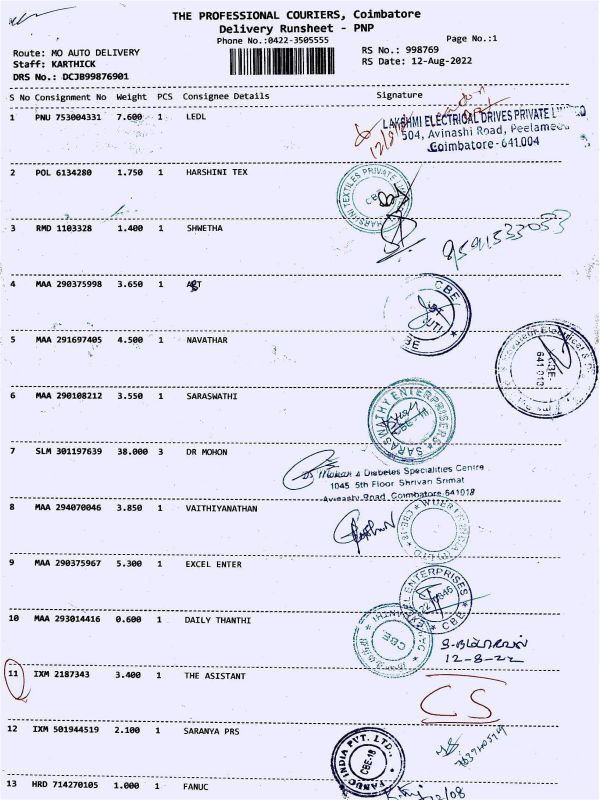 THE PROFESSIONAL COURIERS, Coimbatore
Delivery Runsheet - PNP
Phone No.:0422-3505555
Page No.:1
Route: MO AUTO DELIVERY
Staff: KARTHICK
DRS No.: DCJB99876901
RS No.: 998769
RS Date: 12-Aug-2022
S No Consignment No Weight PCS Consignee Details Signature
1 PNU 753004331 7.600 1 LEDL
LAKSHMI ELECTRICAL DRIVES PRIVATE
504, Avinashi Road, Peelamedu
Coimbatore - 641.004
2 POL 6134280 1.750 1 HARSHINI TEX
HARSHINI TEXTILES PRIVATE
CBE
3 RMD 1103328 1.400 1 SHWETHA
9591533053
4 MAA 290375998 3.650 1
CBE
5 MAA 291697405 4.500 1 NAVATHAR
CBE-
641 013
6 MAA 290108212 3.550 1 SARASWATHI
SARASWATHY ENTERPRISERS
CBE-
7 SLM 301197639 38.000 3 DR MOHON
Diabetes Specialities Centre
1045 5th Floor Shrivari Srimat
Avinashi Road, Coimbatore 641018
8 MAA 294070046 3.850 1 VAITHIYANATHAN
CBE-18
9 MAA 290375967 5.300 1 EXCEL ENTER
ENTERPRISES
CBE
10 MAA 293014416 0.600 1 DAILY THANTHI
CBE.
12-8-22
11 IXM 2187343 3.400 1 THE ASISTANT
CS
12 IXM 501944519 2.100 1 SARANYA PRS
FANUC INDIA PVT. LTD.,
CBE-18
13 HRD 714270105 1.000 1 FANUC
12/08